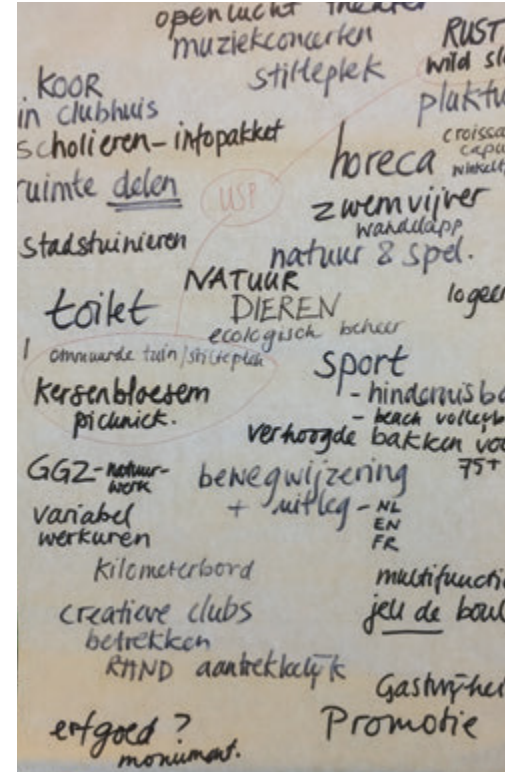 openlucht theater
muziekconcerten
RUST
stilteplek
wild
KOOR
in clubhuis
scholieren-infopakket
horeca
ruimte delen
USP
zwemvijver
wandelapp
stadstuinieren
natuur & spel.
NATUUR
toilet
DIEREN
ecologisch beheer
ommuurde tuin/stilteplek
sport
kersenbloesem
picknick.
- beach
verhoogde bakken
75+
GGZ-natuur-
werk
bewegwijzering
+ uitleg - NL
EN
FR
variabel
werkuren
kilometerbord
creatieve clubs
betrekken
jeu de
RAND aantrekkelijk
Promotie
erfgoed?
monument.